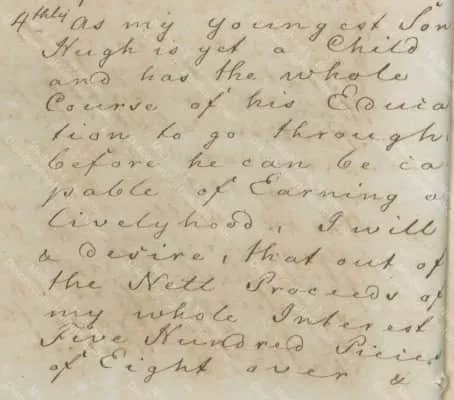 4thly As my youngest Son
Hugh is yet a Child
and has the whole
Course of his Educa
tion to go through
before he can be ca
pable of Earning a
livelyhood, I will
& desire, that out of
the Nett Proceeds of
my whole Interest
Five Hundred Pieces
of Eight over &